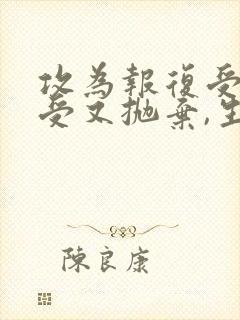 攻為報復受
受又拋棄,生
陳良康